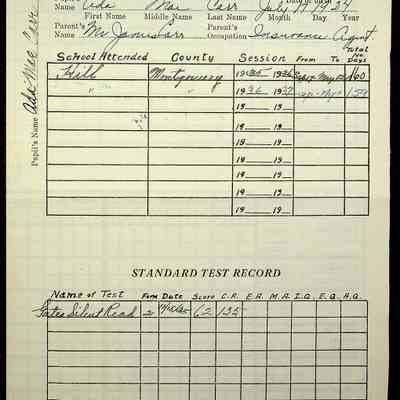 Name Ada Mae Carr July 17 1924
First Name Middle Name Last Name Month Day Year
Parent's Name Mr James Carr Parent's Occupation Insurance Agent
School Attended County Session From To Total No. Days
Hill Montgomery 1935 1936 Sept May 160
" " 1936 1937 159
19 19
19 19
19 19
19 19
19 19
19 19
Pupil's Name Ada Mae Carr
STANDARD TEST RECORD
Name of Test Form Date Score C.A. E.A. M.A. I.Q. E.Q. A.Q.
Gates Silent Read 2 62 135